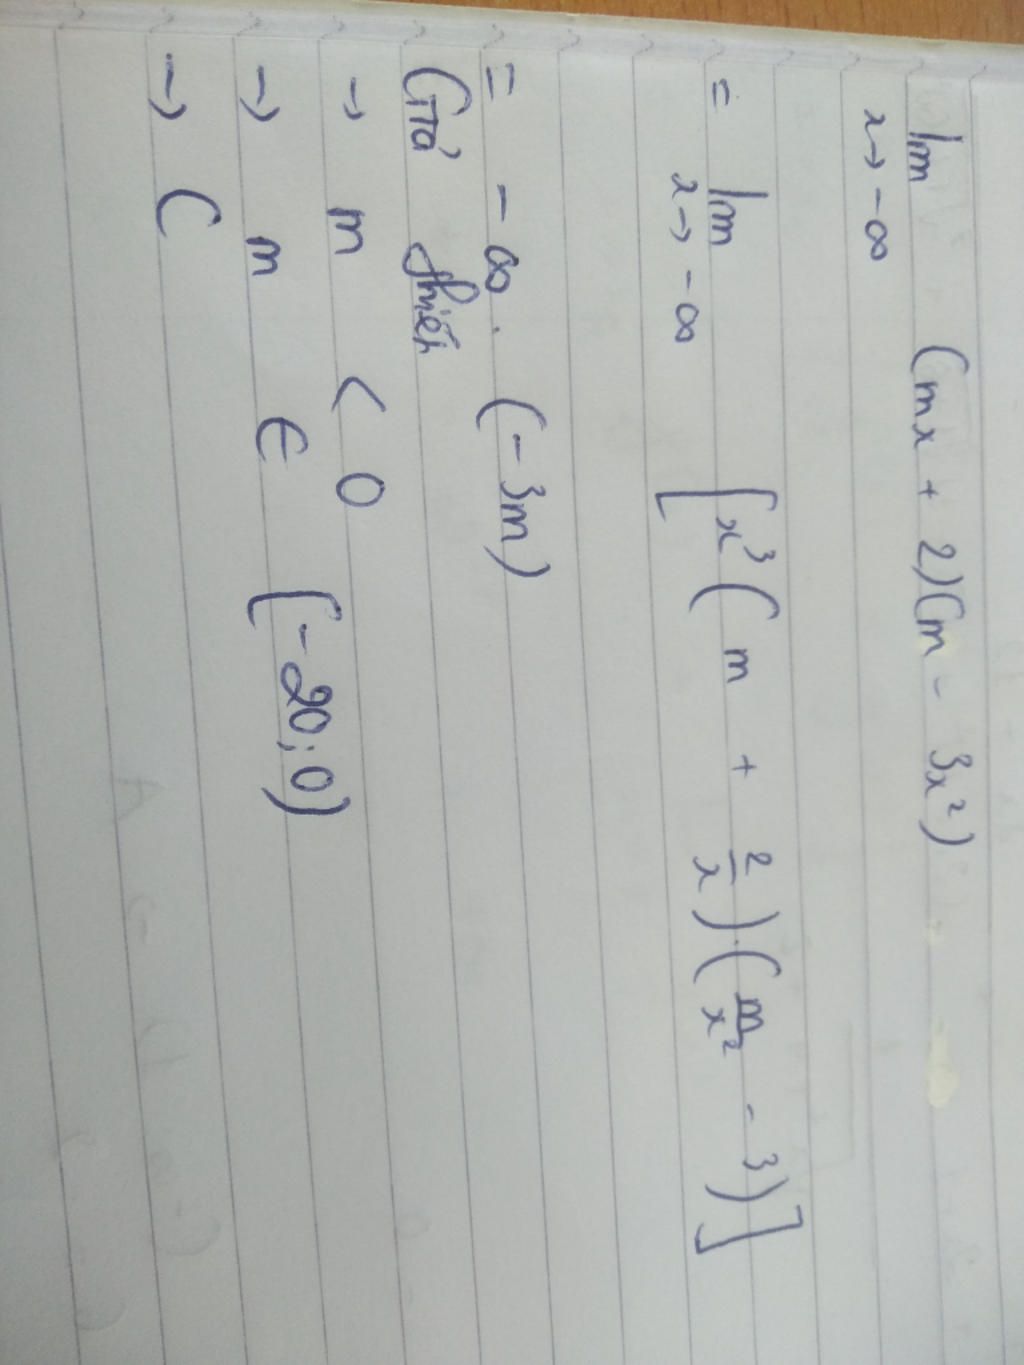 lim (mx + 2)(m - 3x²)
x→-∞
= lim [x³(m + 2/x).(m/x² - 3)]
x→-∞
= -∞. (-3m)
Giả thiết
→ m < 0
→ m ∈ [-20; 0)
→ C